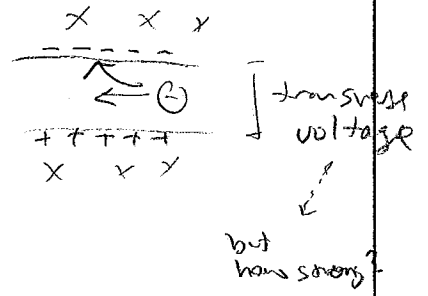 X X X
- - - - -
-
+ + + + +
X X X
transverse
voltage
but
how strong?